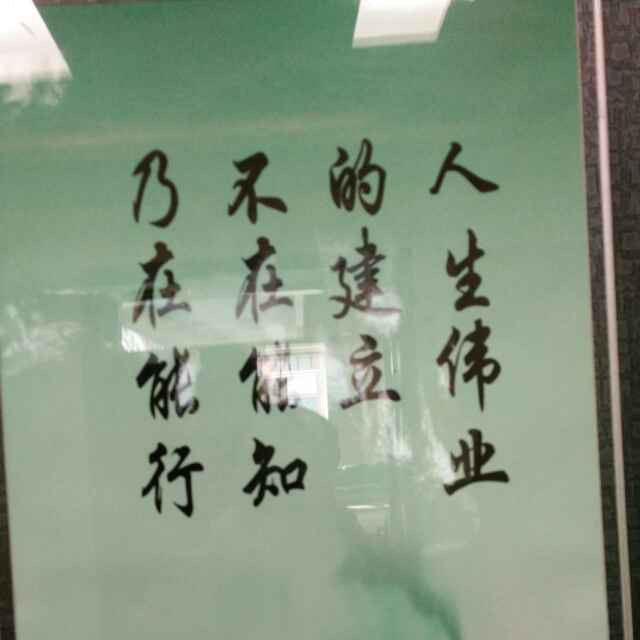 人生伟业
的建立
不在能知
乃在能行